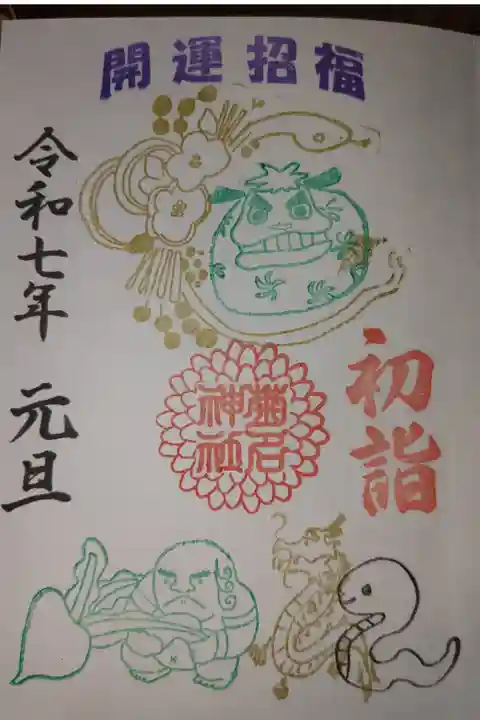 開運招福
初詣
菊石
神社
令和七年 元旦